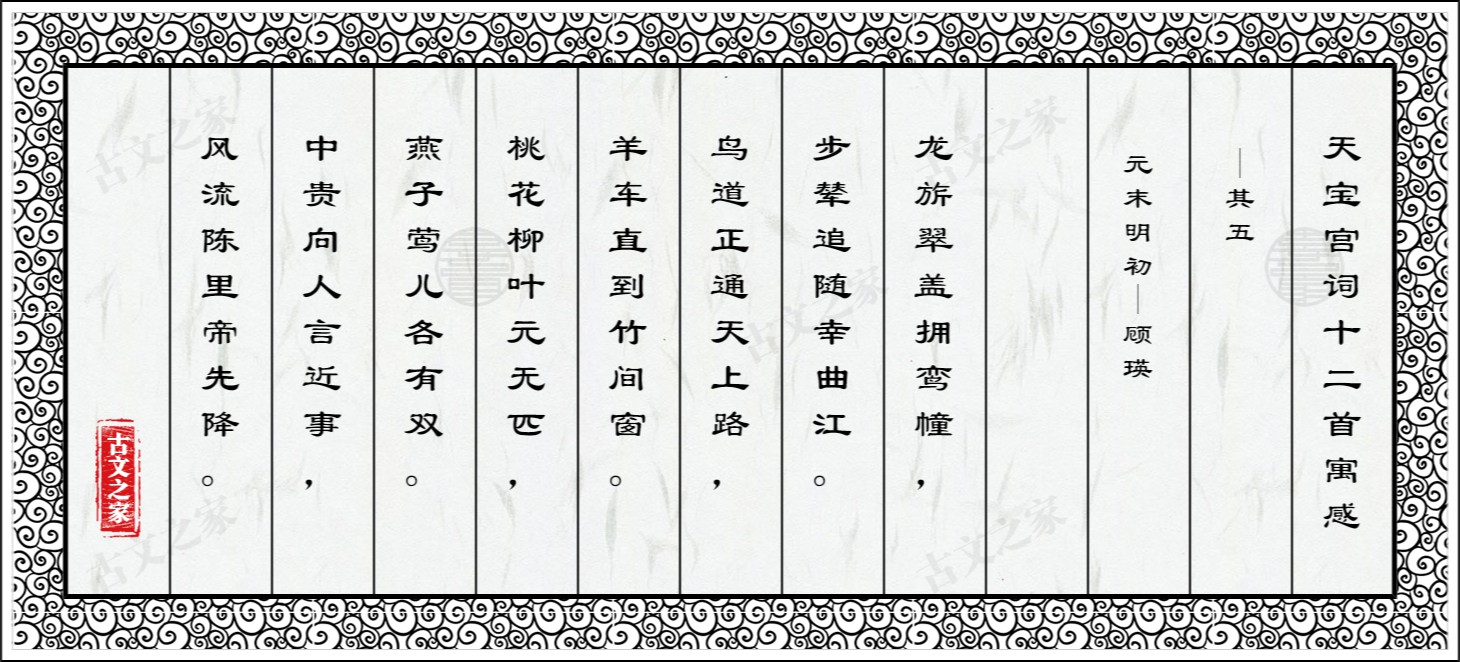 天宝宫词十二首寓感
—其五
元末明初—顾瑛
龙旂翠盖拥鸾幢，
步辇追随幸曲江。
鸟道正通天上路，
羊车直到竹间窗。
桃花柳叶元无匹，
燕子莺儿各有双。
中贵向人言近事，
风流陈里帝先降。
古文之家